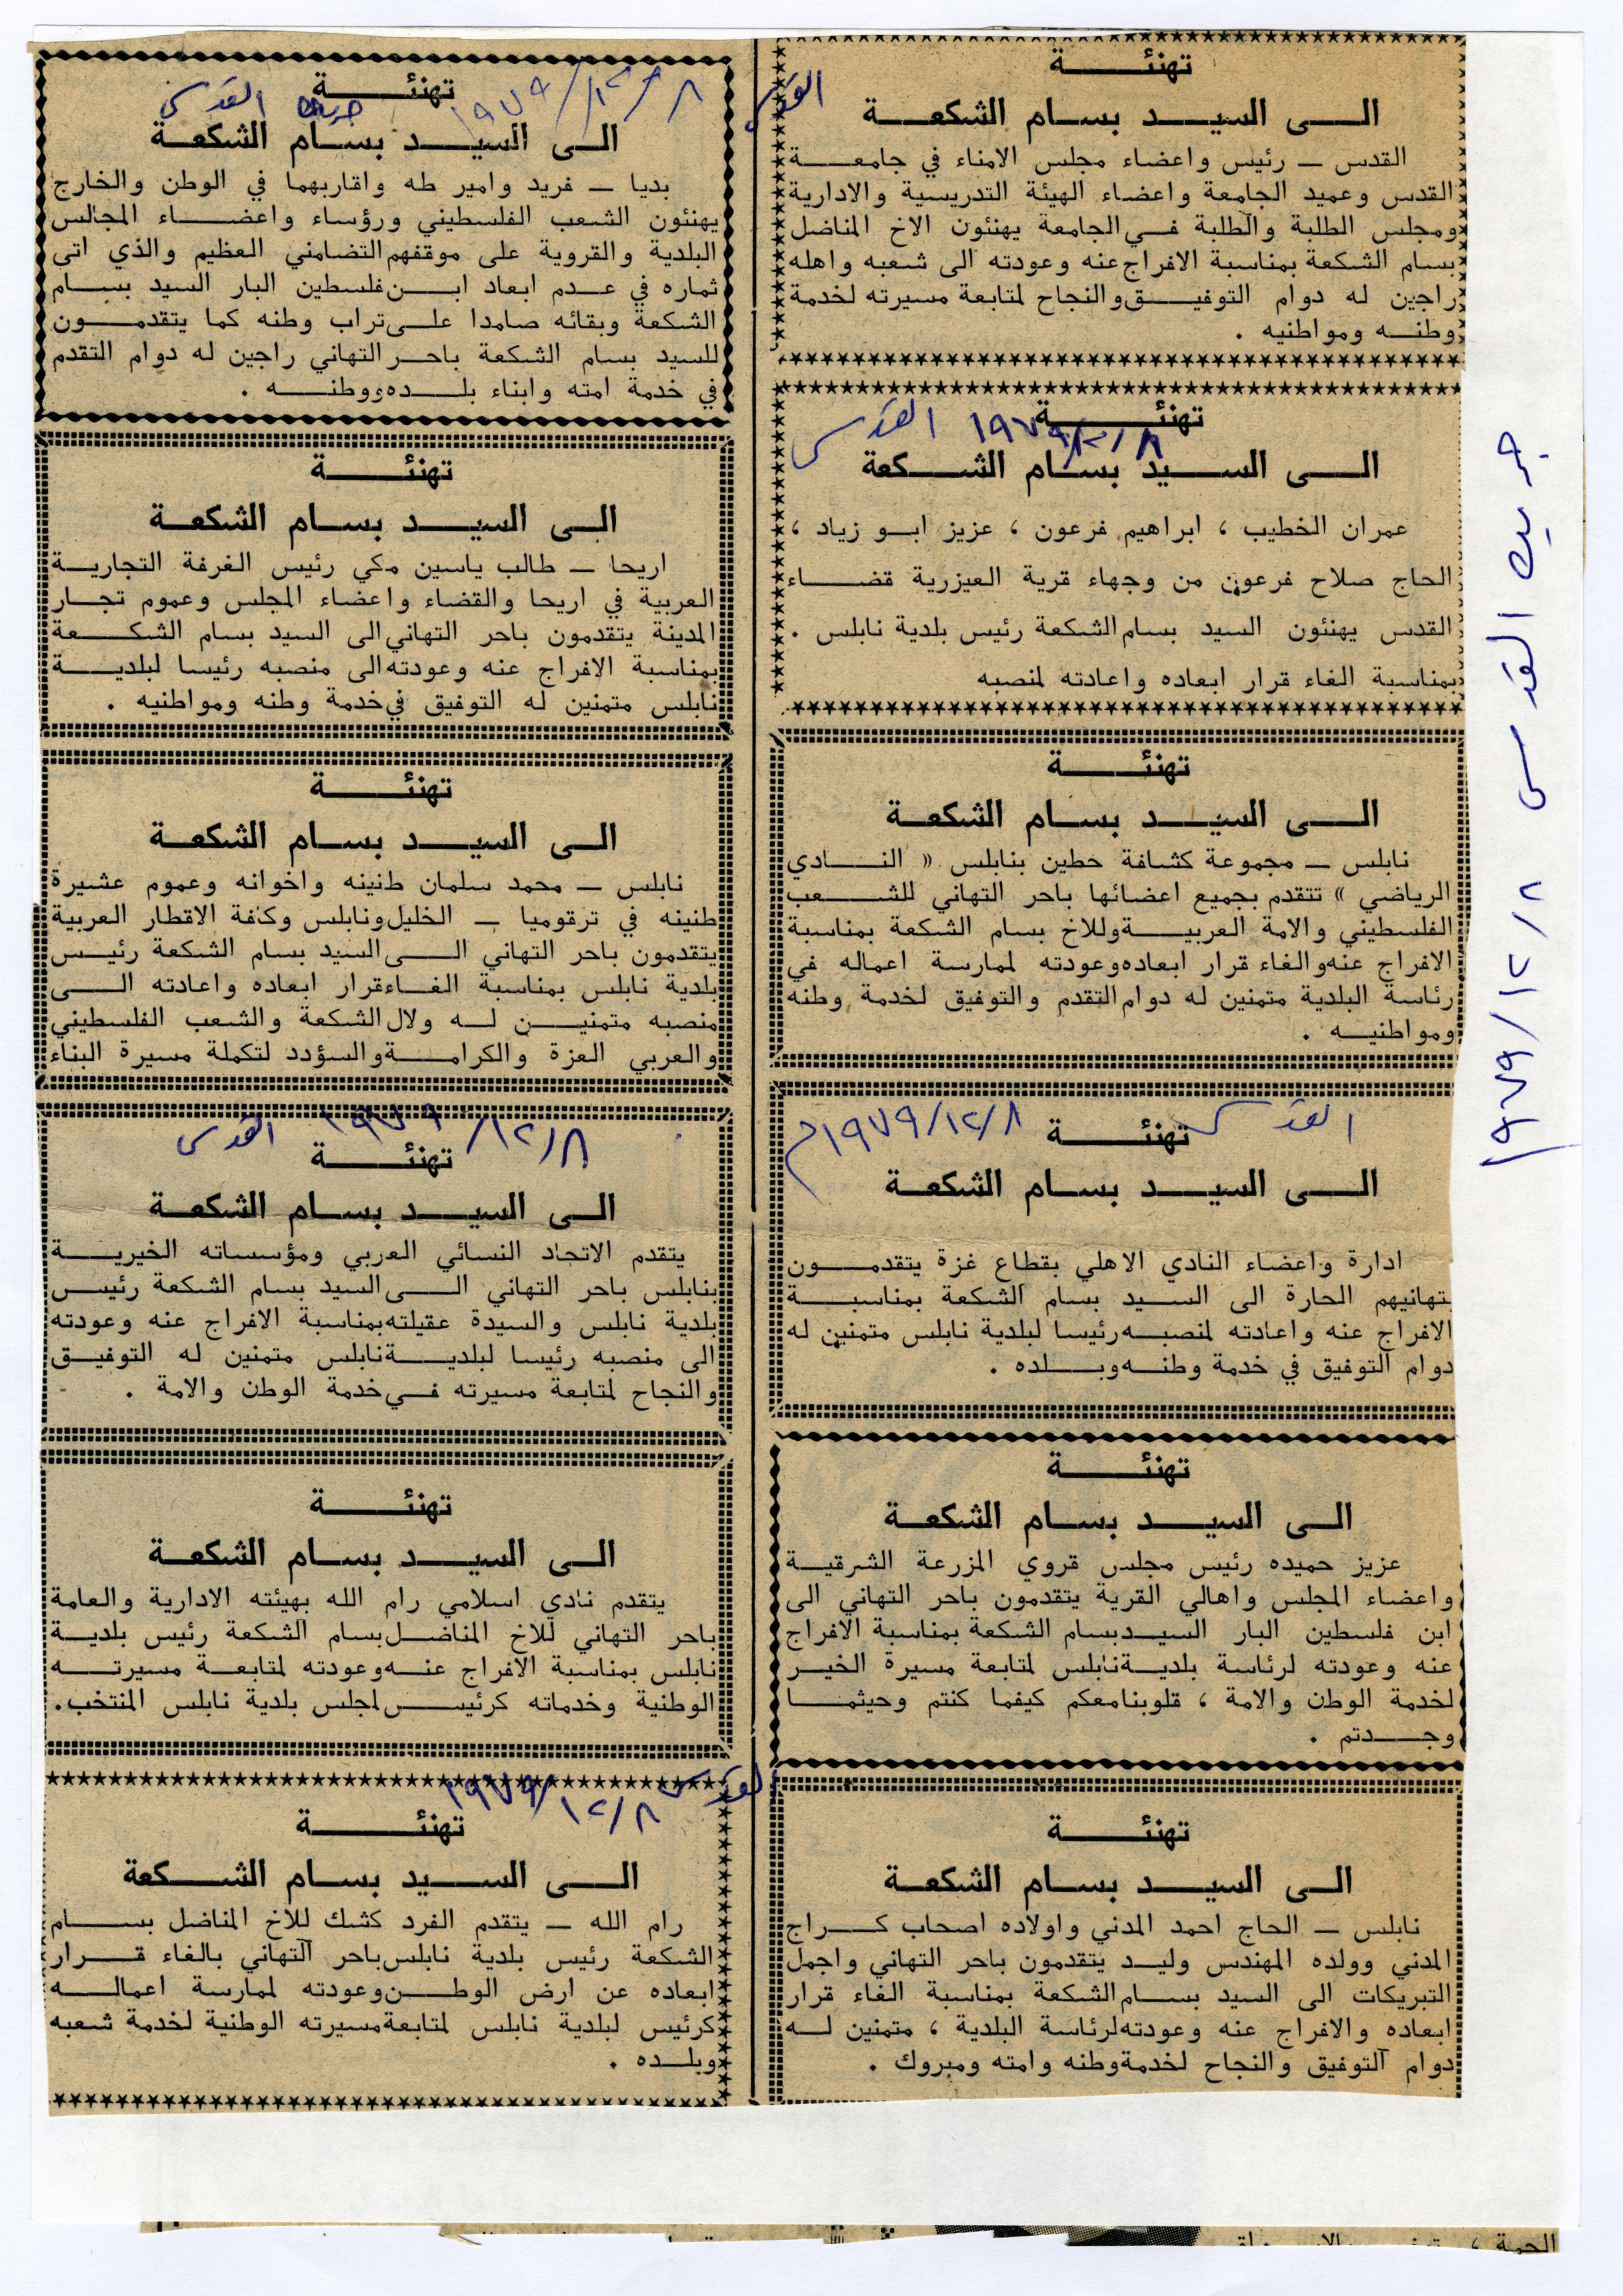 تهنئة
القدس
الى السيد بسام الشكعة
القدس — رئيس واعضاء مجلس الامناء في جامعة
القدس وعميد الجامعة واعضاء الهيئة التدريسية والادارية
ومجلس الطلبة والطلبة في الجامعة يهنئون الاخ المناضل
بسام الشكعة بمناسبة الافراج عنه وعودته الى شعبه واهله
راجين له دوام التوفيق والنجاح لمتابعة مسيرته لخدمة
وطنه ومواطنيه .
تهنئة
القدس ١٩٧٩/١٢/٨
الى السيد بسام الشكعة
عمران الخطيب ، ابراهيم فرعون ، عزيز ابو زياد ،
الحاج صلاح فرعون من وجهاء قرية العيزرية قضاء
القدس يهنئون السيد بسام الشكعة رئيس بلدية نابلس .
بمناسبة الغاء قرار ابعاده واعادته لمنصبه
تهنئة
الى السيد بسام الشكعة
نابلس — مجموعة كشافة حطين بنابلس « النادي
الرياضي » تتقدم بجميع اعضائها باحر التهاني للشعب
الفلسطيني والامة العربية وللاخ بسام الشكعة بمناسبة
الافراج عنه والغاء قرار ابعاده وعودته لممارسة اعماله في
رئاسة البلدية متمنين له دوام التقدم والتوفيق لخدمة وطنه
ومواطنيه .
القدس ١٩٧٩/١٢/٨م
تهنئة
الى السيد بسام الشكعة
ادارة واعضاء النادي الاهلي بقطاع غزة يتقدمون
بتهانيهم الحارة الى السيد بسام الشكعة بمناسبة
الافراج عنه واعادته لمنصبه رئيسا لبلدية نابلس متمنين له
دوام التوفيق في خدمة وطنه وبلده .
تهنئة
الى السيد بسام الشكعة
عزيز حميده رئيس مجلس قروي المزرعة الشرقية
واعضاء المجلس واهالي القرية يتقدمون باحر التهاني الى
ابن فلسطين البار السيد بسام الشكعة بمناسبة الافراج
عنه وعودته لرئاسة بلدية نابلس لمتابعة مسيرة الخير
لخدمة الوطن والامة ، قلوبنا معكم كيفما كنتم وحيثما
وجدتم .
تهنئة
الى السيد بسام الشكعة
نابلس — الحاج احمد المدني واولاده اصحاب كراج
المدني وولده المهندس وليد يتقدمون باحر التهاني واجمل
التبريكات الى السيد بسام الشكعة بمناسبة الغاء قرار
ابعاده والافراج عنه وعودته لرئاسة البلدية ، متمنين له
دوام التوفيق والنجاح لخدمة وطنه وامته ومبروك .
تهنئة
١٩٧٩/١٢/٨ جريدة القدس
الى السيد بسام الشكعة
بديا — فريد وامير طه واقاربهما في الوطن والخارج
يهنئون الشعب الفلسطيني ورؤساء واعضاء المجالس
البلدية والقروية على موقفهم التضامني العظيم والذي اتى
ثماره في عدم ابعاد ابن فلسطين البار السيد بسام
الشكعة وبقائه صامدا على تراب وطنه كما يتقدمون
للسيد بسام الشكعة باحر التهاني راجين له دوام التقدم
في خدمة امته وابناء بلده ووطنه .
تهنئة
الى السيد بسام الشكعة
اريحا — طالب ياسين مكي رئيس الغرفة التجارية
العربية في اريحا والقضاء واعضاء المجلس وعموم تجار
المدينة يتقدمون باحر التهاني الى السيد بسام الشكعة
بمناسبة الافراج عنه وعودته الى منصبه رئيسا لبلدية
نابلس متمنين له التوفيق في خدمة وطنه ومواطنيه .
تهنئة
الى السيد بسام الشكعة
نابلس — محمد سلمان طنينه واخوانه وعموم عشيرة
طنينه في ترقوميا — الخليل ونابلس وكافة الاقطار العربية
يتقدمون باحر التهاني الى السيد بسام الشكعة رئيس
بلدية نابلس بمناسبة الغاء قرار ابعاده واعادته الى
منصبه متمنين له ولال الشكعة والشعب الفلسطيني
والعربي العزة والكرامة والسؤدد لتكملة مسيرة البناء
١٩٧٩/١٢/٨ القدس
تهنئة
الى السيد بسام الشكعة
يتقدم الاتحاد النسائي العربي ومؤسساته الخيرية
بنابلس باحر التهاني الى السيد بسام الشكعة رئيس
بلدية نابلس والسيدة عقيلته بمناسبة الافراج عنه وعودته
الى منصبه رئيسا لبلدية نابلس متمنين له التوفيق
والنجاح لمتابعة مسيرته في خدمة الوطن والامة .
تهنئة
الى السيد بسام الشكعة
يتقدم نادي اسلامي رام الله بهيئته الادارية والعامة
باحر التهاني للاخ المناضل بسام الشكعة رئيس بلدية
نابلس بمناسبة الافراج عنه وعودته لمتابعة مسيرته
الوطنية وخدماته كرئيس لمجلس بلدية نابلس المنتخب.
القدس ١٩٧٩/١٢/٨
تهنئة
الى السيد بسام الشكعة
رام الله — يتقدم الفرد كشك للاخ المناضل بسام
الشكعة رئيس بلدية نابلس باحر التهاني بالغاء قرار
ابعاده عن ارض الوطن وعودته لممارسة اعماله
كرئيس لبلدية نابلس لمتابعة مسيرته الوطنية لخدمة شعبه
وبلده .
جريدة القدس ١٩٧٩/١٢/٨